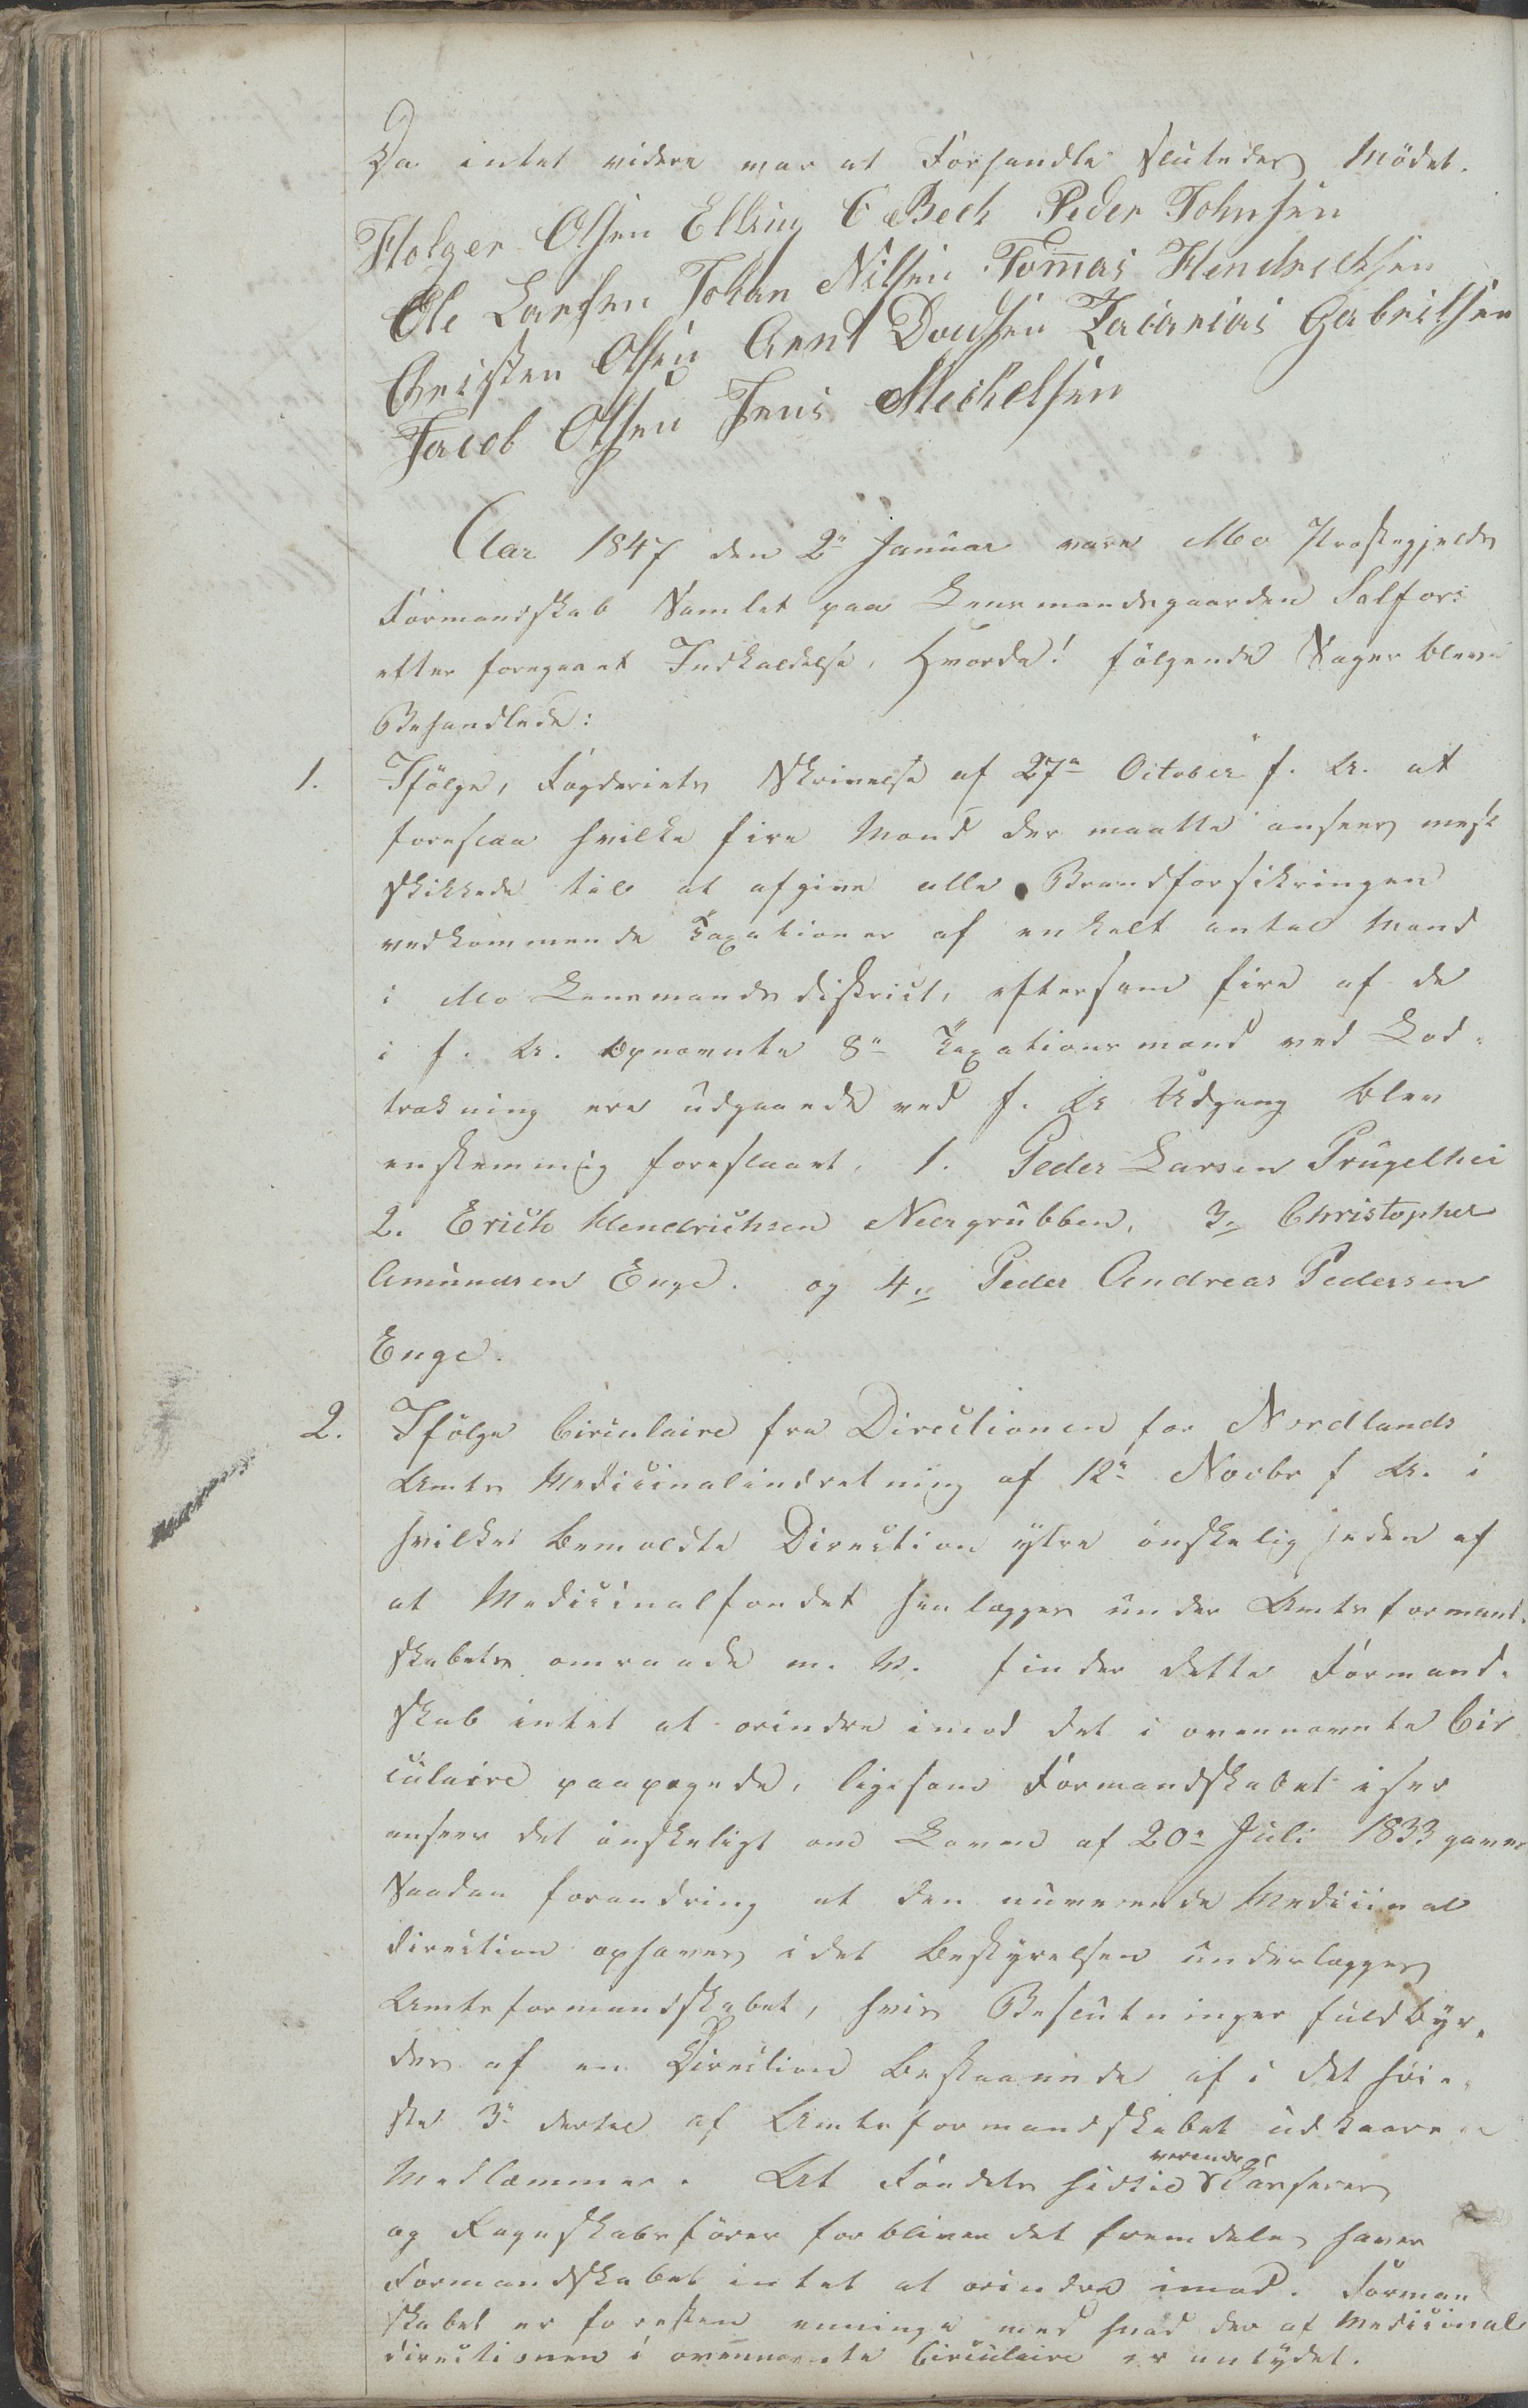 Da intet videre var at Forhandle sluttedes Mödet.
Holger Olsen Elling C Bech Peder Johnsen
Ole Larsen Johan Nilsen Tom̄as Hendrichsen
Christen Olsen Arnt Dousen Zacarias Gabrielsen
Jacob Olsen Jens Michelsen
Aar 1847 den 2n Januar vare Mo Præstegjelds
Formandskab Samlet paa Lensmandsgaarden Selfors
efter foregaaet Indkaldelse, Hvorda! fölgende Sager bleve
Behandlede:
1. Ifölge, Fogderiets Skrivelse af 27n October f. A. at
foreslaa hvilke fire Mænd der maatte ansees mest
skikkede til at afgive alle Brandforsikringen
vedkommende Taxationer af enkelt antal Mænd
i Mo Lensmandsdistrict, eftersom fire af de
i f. A. Opnævnte 8n Taxationsmænd ved Lod-
trækning ere udgaaede ved f. A Udgang blev
enstemmig foreslaaet, 1. Peder Larsen Prugelhei
2. Erich Hendrichsen Neergrubben, 3n Christopher
Amundsen Enge. og 4n Peder Andreas Pedersen
Enge.
2. Ifölge Circulaire fra Directionen for Nordlands
Amts Medicinalindretning af 12n Novbr f A. i
hvilket Bemældte Direction ytre önskelig heden af
at Medicinalfondet henlægges under Amtsformand-
skabets omraade m. V. finder dette Formand-
skab intet at erindre imod det i ovennævnte Cir
culaire paapegede, ligesom Formandskabet især
anseer det önskeligt om Loven af 20n Juli 1833 gaves
Saadan forandring at den nuværende Medicinal
direction ophæves idet Bestyrelsen underlægges
Amtsformandskabet, hvis Beslutninger fuldbyr-
des af en Direction Bestaaende af i det höie-
ste 3n dertil af Amtsformandskabet udkaarede
Medlemmer. At Fondets hidtil værende Kasserer
og Regnskabsförer forbliver det fremdeles haver
Formandskabet intet at erindre imod. Forman
skabet er foresten eenige med hvad der af Medicinal
directionen i ovennævnte Circulaire er antydet.